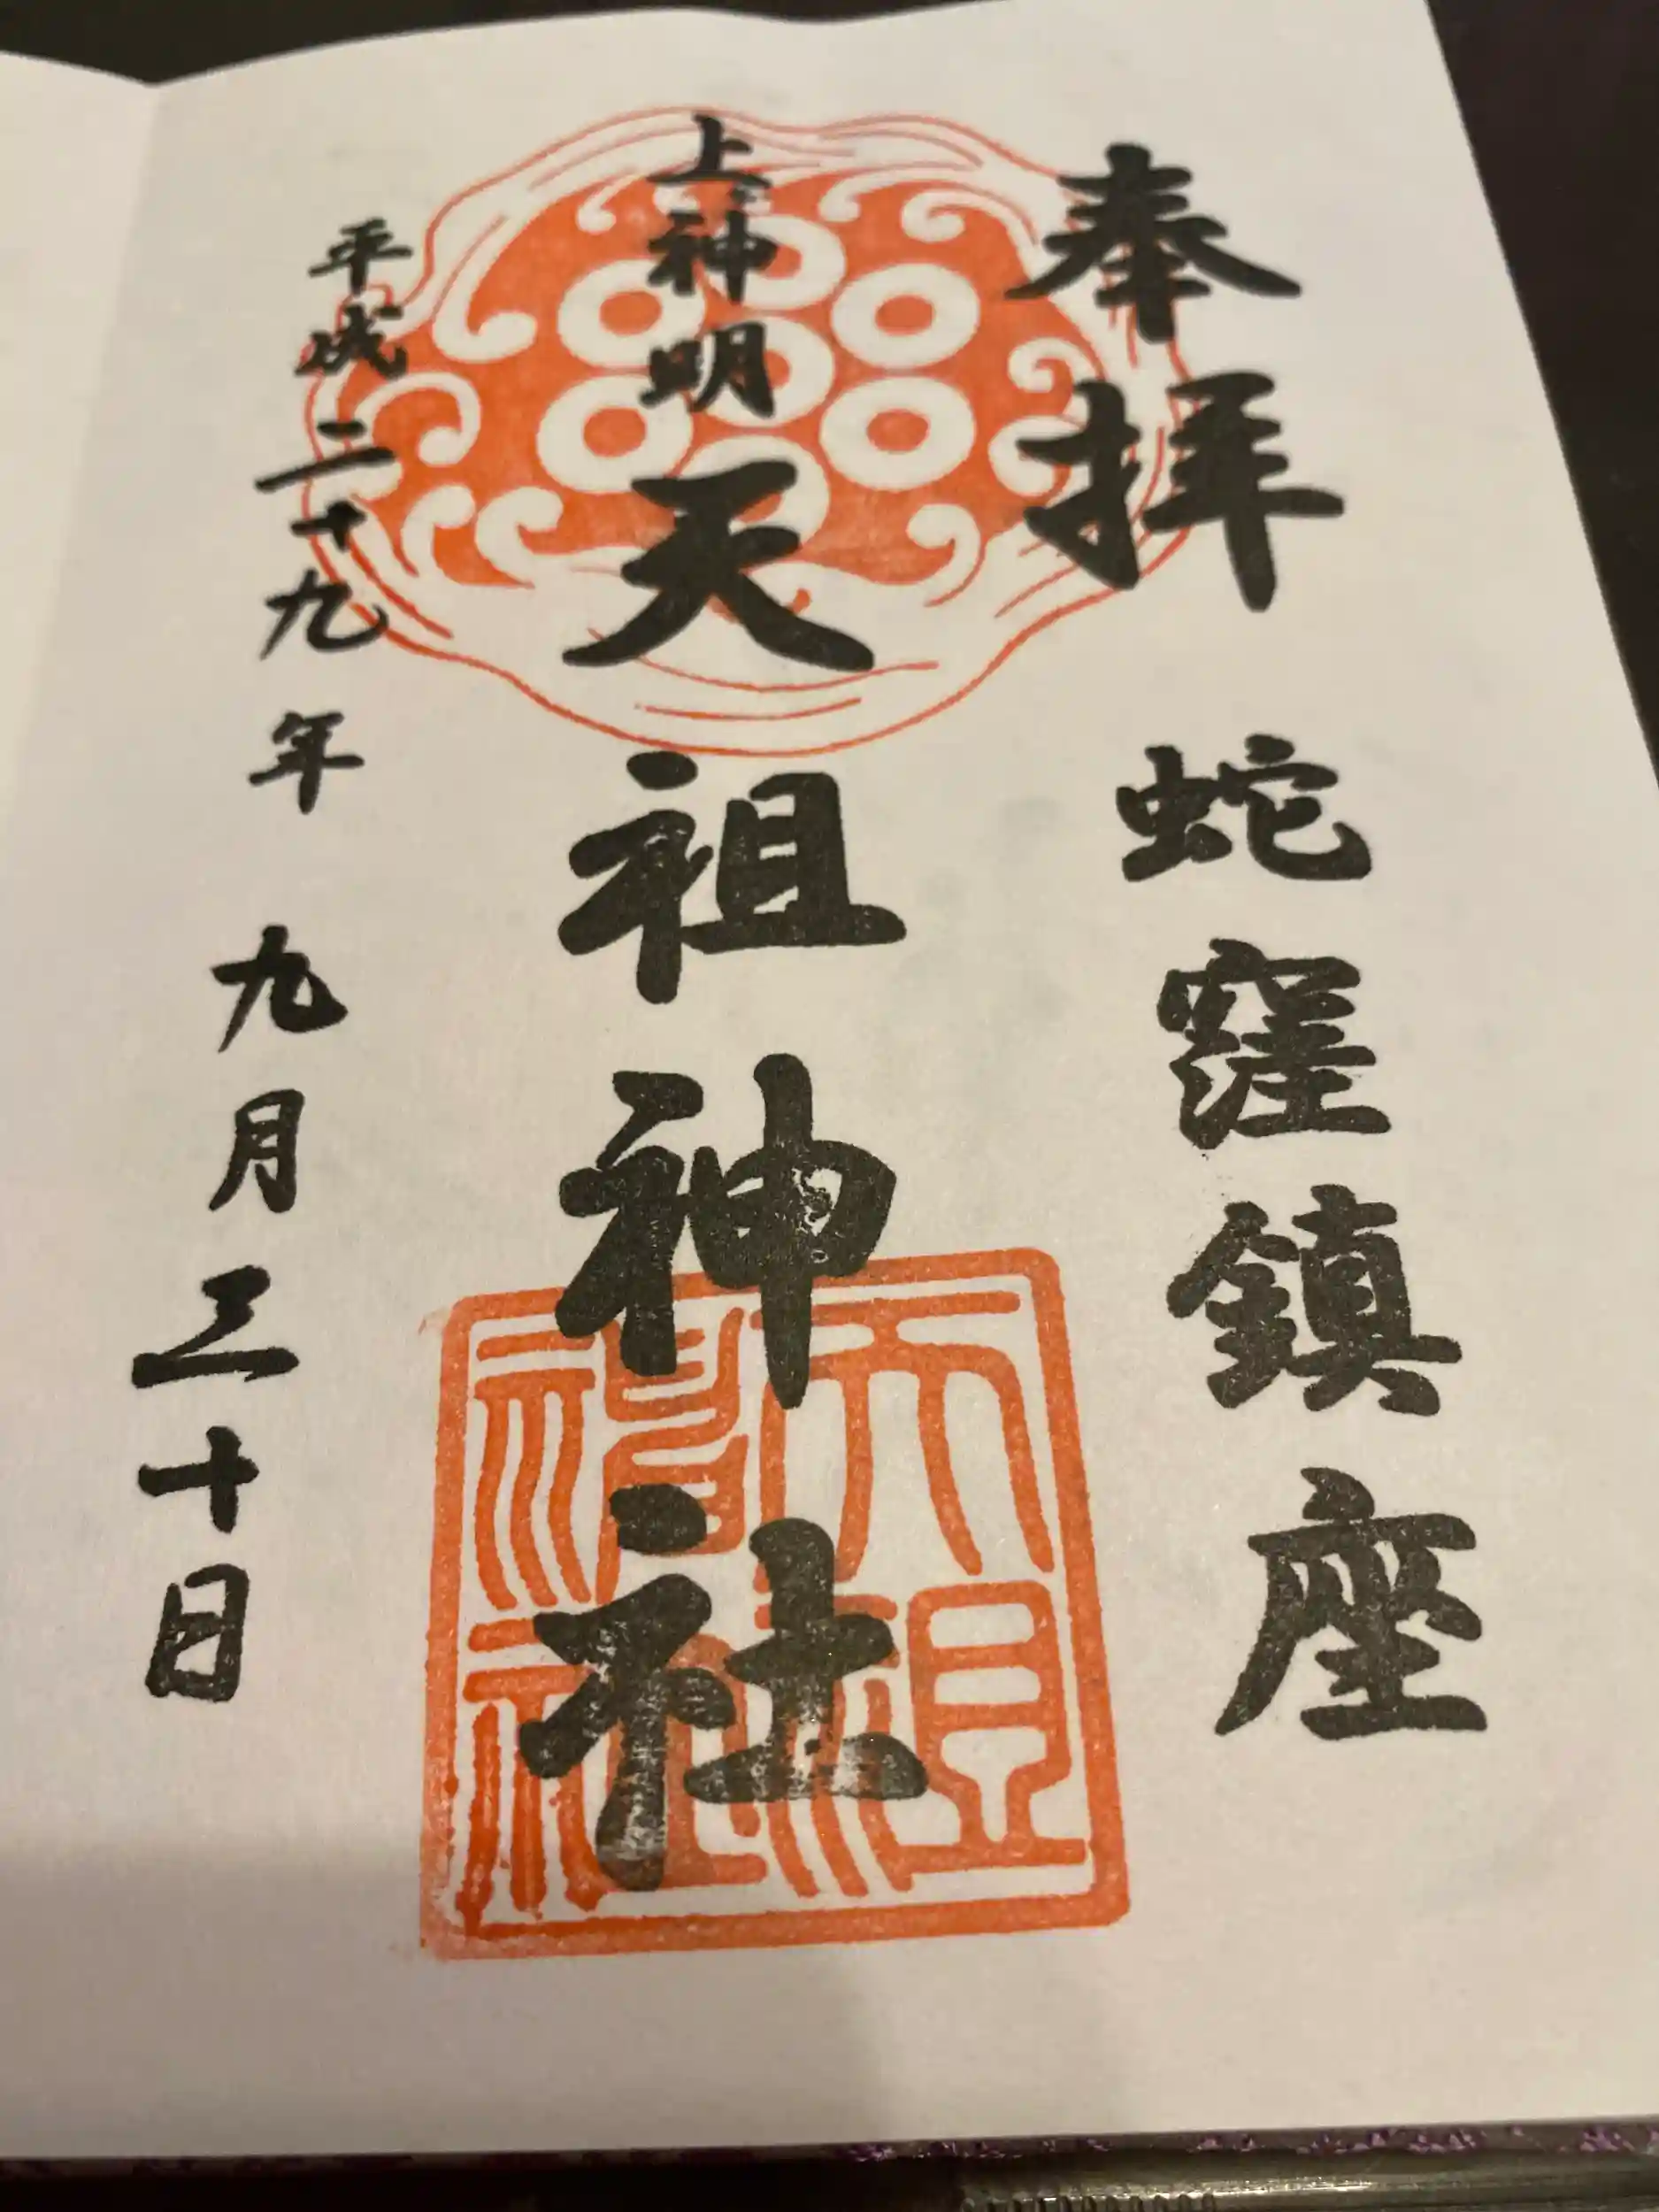 奉拝
蛇窪鎮座
上神明
天祖神社
平成二十九年 九月三十日
天祖
神社